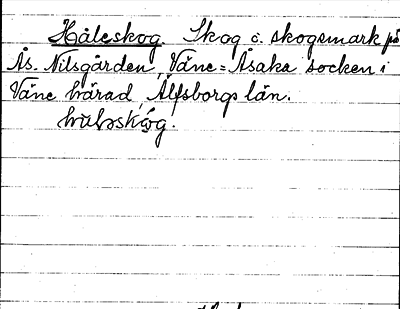 Håleskog. Skog o. skogsmark på
Ås. Nilsgården, Väne-Åsaka socken i
Väne härad, Älfsborgs län.